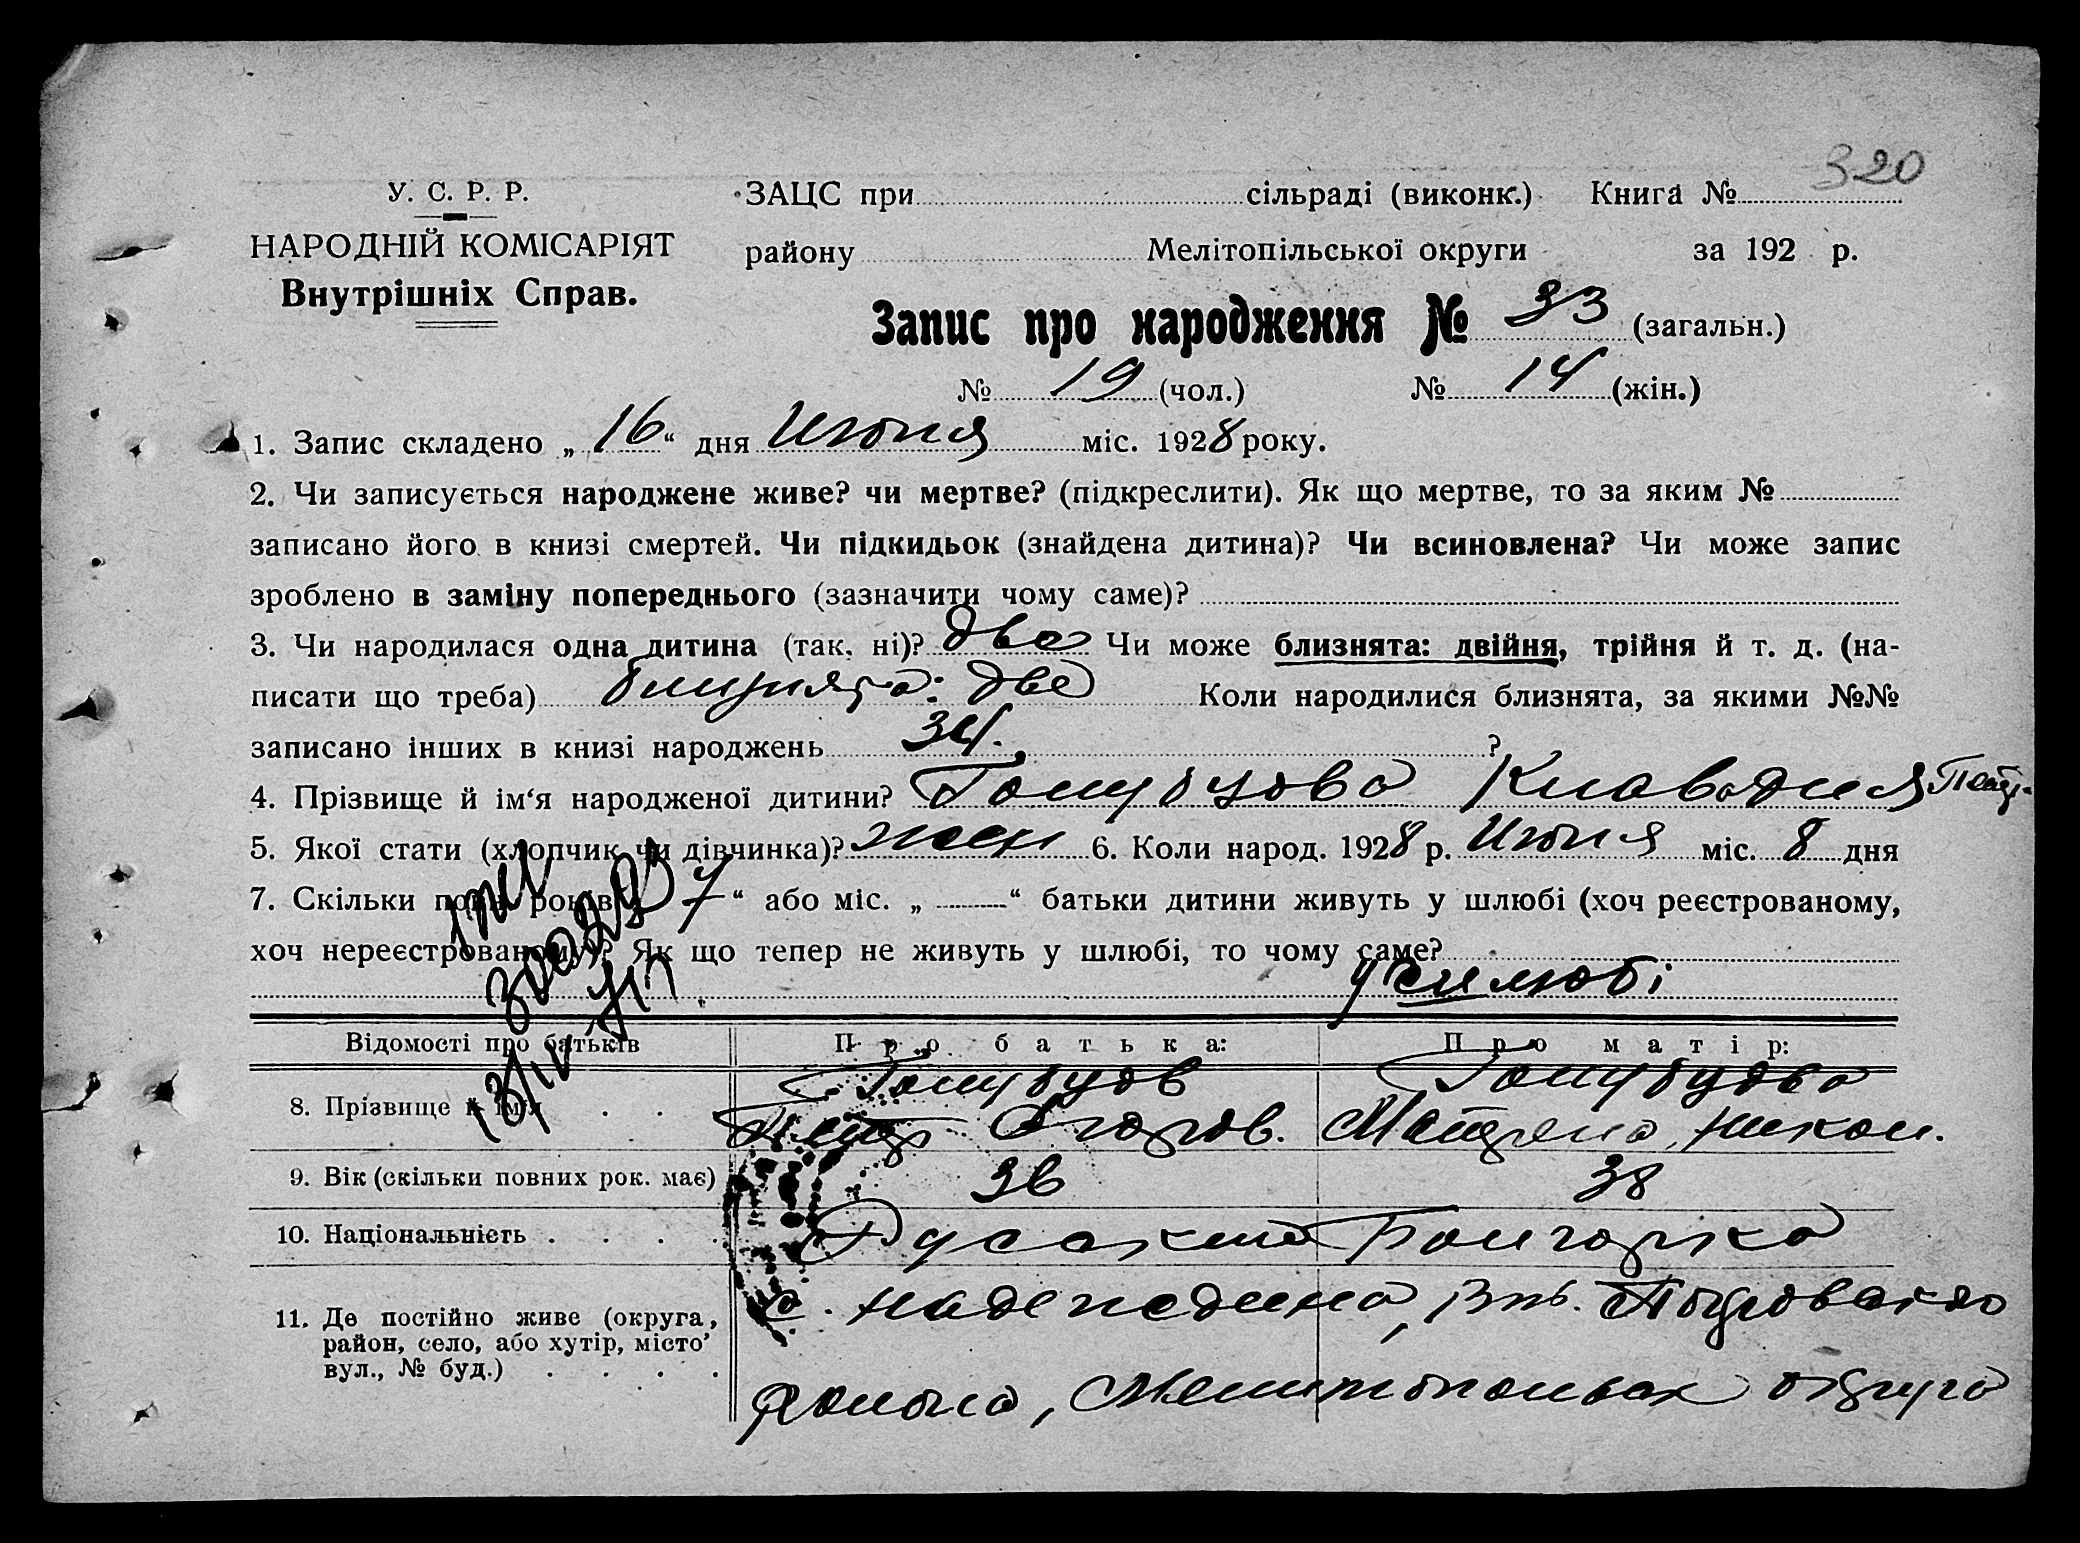 320
У. С. Р. Р.
НАРОДНІЙ КОМІСАРІЯТ
Внутрішніх Справ.
ЗАЦС при сільраді (виконк.) Книга №
району Мелітопільської округи за 192 р.
Запис про народження № 33 (загальн.)
№ 19 (чол.) № 14 (жін.)
1. Запис складено „ 16 “ дня Июня міс. 1928 року.
2. Чи записується народжене живе? чи мертве? (підкреслити). Як що мертве, то за яким №
записано його в книзі смертей. Чи підкидьок (знайдена дитина)? Чи всиновлена? Чи може запис
зроблено в заміну попереднього (зазначити чому саме)?
3. Чи народилася одна дитина (так, ні)? две Чи може близнята: двійня, трійня й т. д. (на-
писати що треба) близнята: две Коли народилися близнята, за якими №№
записано інших в книзі народжень 34. ?
4. Прізвище й ім‘я народженої дитини? Голубцова Клавдия Петр.
5. Якої стати (хлопчик чи дівчинка)? жен 6. Коли народ. 1928 р. Июня міс. 8 дня
7. Скільки повн. років 7 “ або міс. „ “ батьки дитини живуть у шлюбі (хоч реєстрованому,
хоч нереєстрованому)? Як що тепер не живуть у шлюбі, то чому саме?
у шлюбі
Відомості про батьків Про батька: Про матір:
8. Прізвище й ім‘я Голубцов Голубцова
Петр Егоров. Матрена Никол.
9. Вік (скільки повних рок. має) 36 38
10. Національність Русский Болгарка
11. Де постійно живе (округа,
район, село, або хутір, місто
вул., № буд.)
с. Надеждина, Покровского
района, Мелитопольск округа